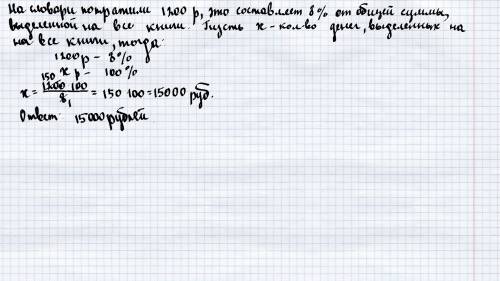 На словари потратили 1200 р, это составляет 8% от общей суммы,
выделенной на все книги. Пусть x - кол-во денег, выделенных на
на все книги, тогда:
1200 р - 8%
x р - 100%
x = 1200 100 / 8 = 150 100 = 15000 руб.
150 1
Ответ: 15000 рублей